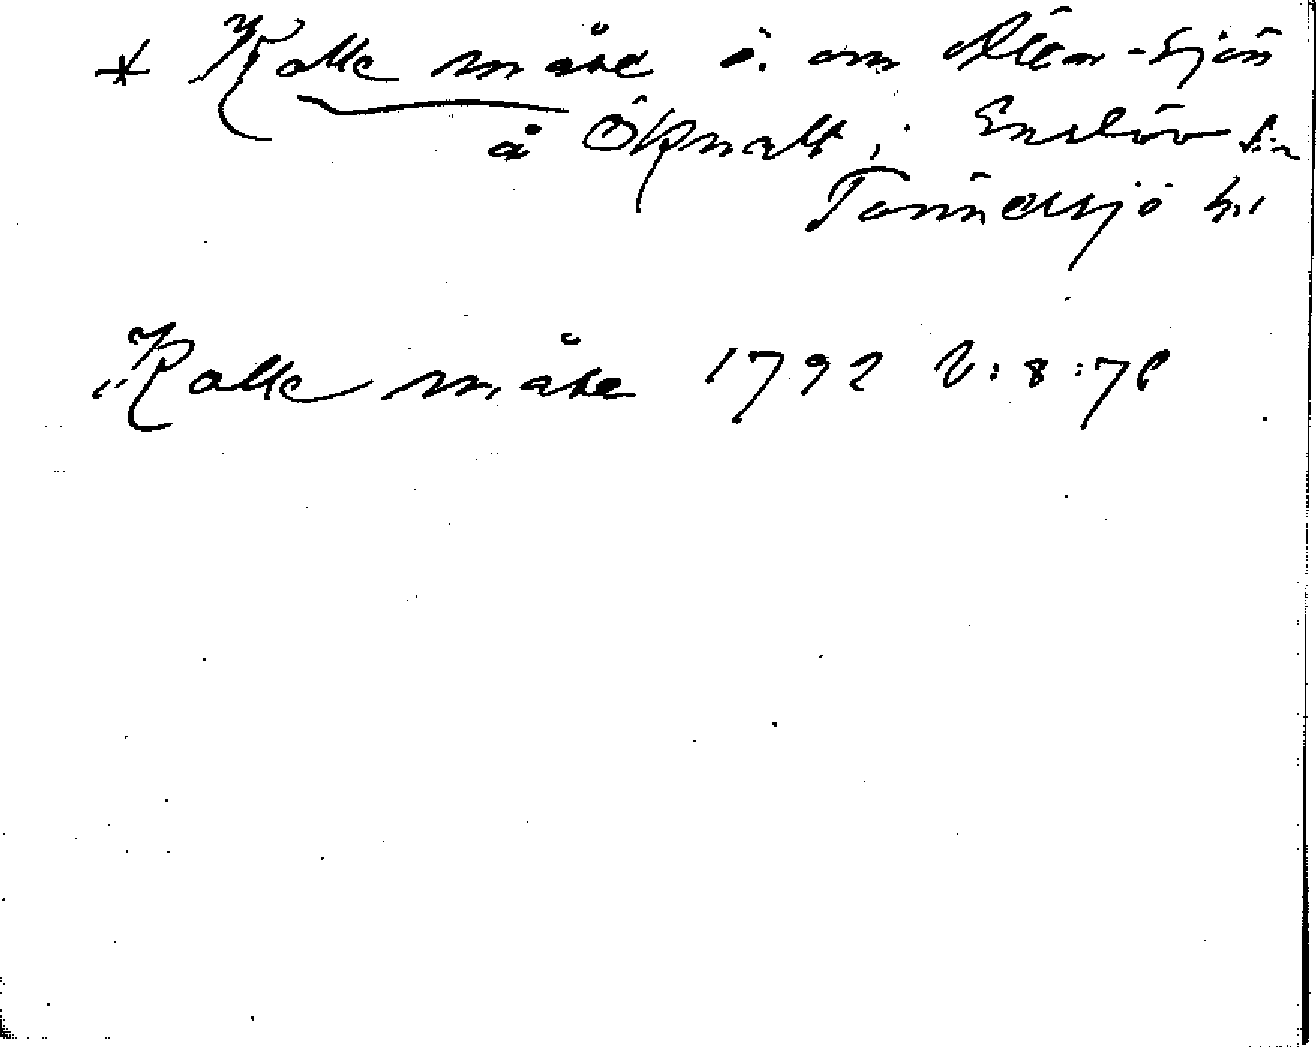 * Kalle måse ö. om Sten-sjön
å Öknalt i Enslöv sn
Tönnersjö hd
"Kalle måse 1792 V:8:78